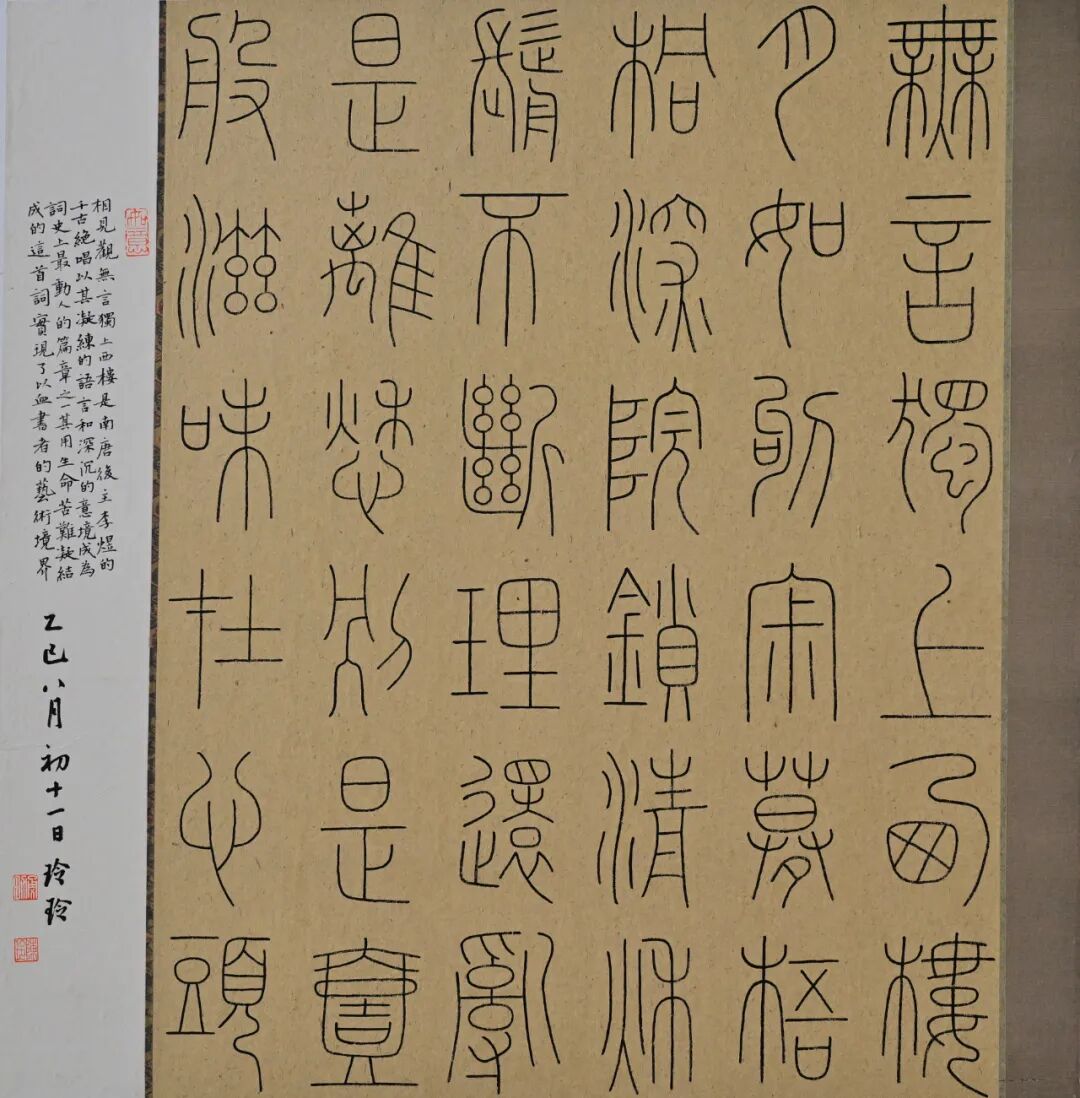 無言獨上西樓
月如鉤寂寞梧
桐深院鎖清秋
鬋不斷理還亂
是離愁別是壹
般滋味在心頭
如意
相見觀無言獨上西樓是南唐後主李煜的
千古絕唱以其凝練的語言和深沉的意境成為
詞史上最動人的篇章之一其用生命苦難凝結
成的這首詞實現了以血書者的藝術境界
乙巳八月初十一日玲玲